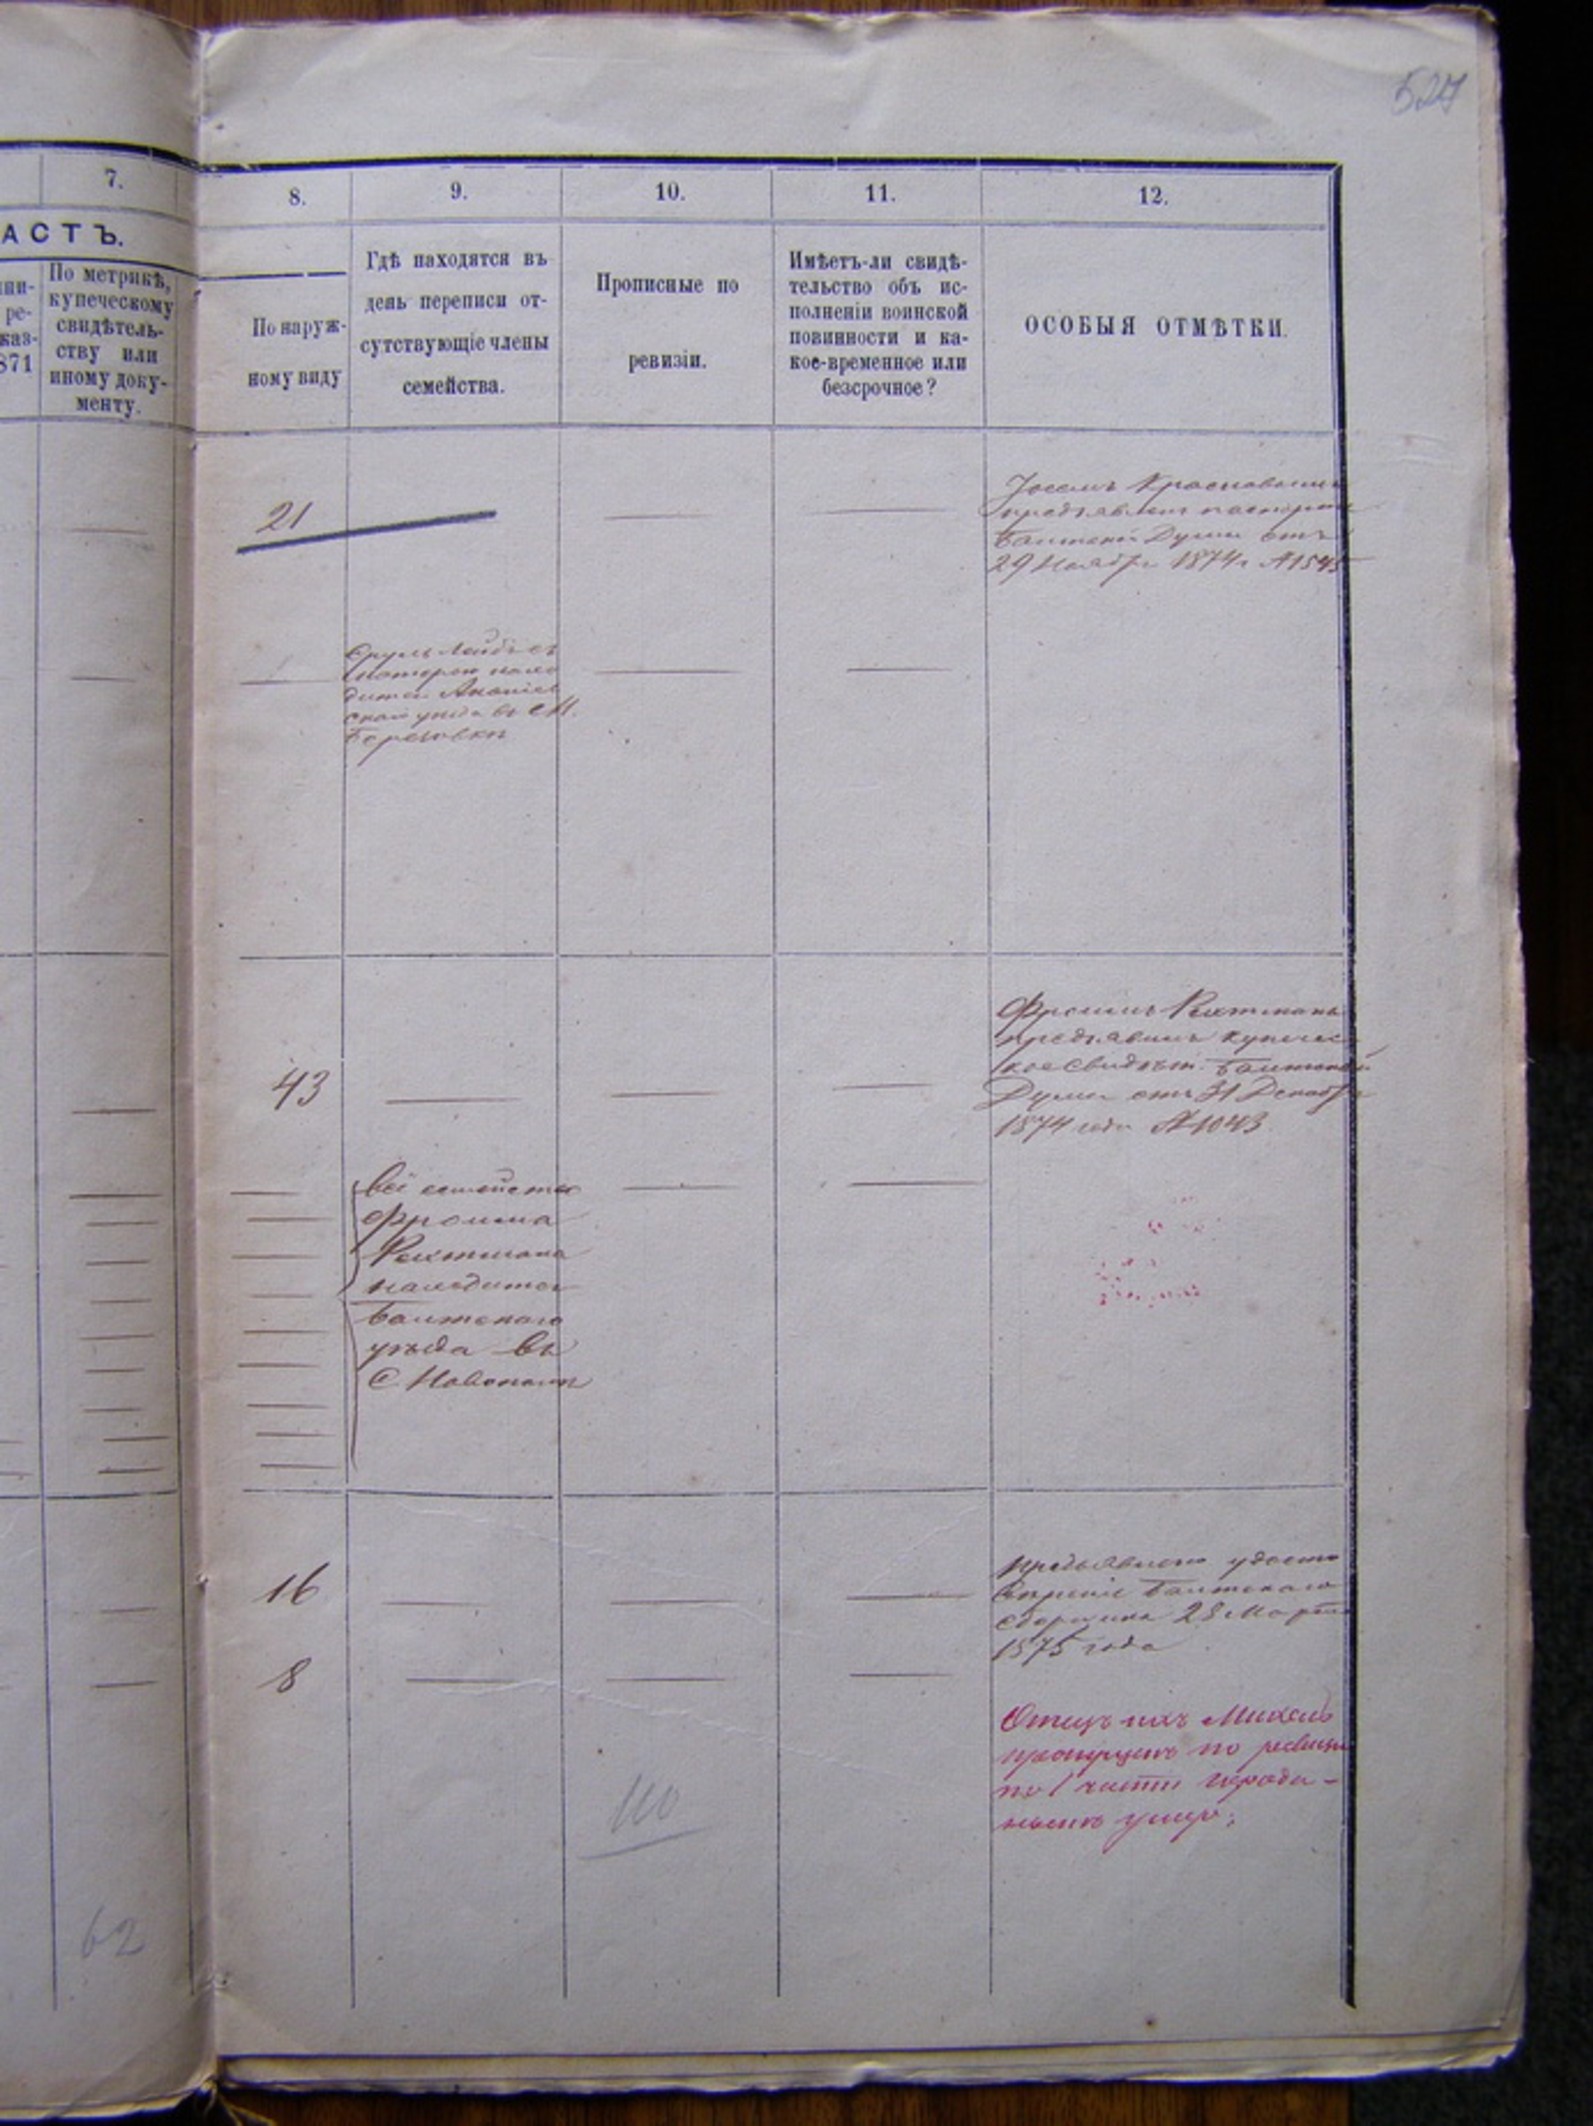 527
7.
8.
9.
10.
11.
12.
АСТЪ.
ни-
ре-
каз-
871
По метрикѣ,
купеческому
свидѣтель-
ству или
иному доку-
менту.
По наруж-
ному виду
Гдѣ находятся въ
день переписи от-
сутствующіе члены
семейства.
Прописные по
ревизіи.
Имѣетъ-ли свидѣ-
тельство объ ис-
полненіи воинской
повинности и ка-
кое-временное или
безсрочное?
ОСОБЫЯ ОТМѢТКИ.
21
предъявлен паспорт
Балтской Думы отъ
29 Ноября 1874 г №1545
Сруль Лейбъ
дится Ананьев
ской уезда въ
Березовки
43
Фроимъ Рихтманъ
предъявилъ купечес
кое свидѣт. Балтской
Думы отъ 31 Декабр
1874 года №1043
Всё семейство
Фроима
Рихтмана
находится
Балтскаго
уѣзда въ
С.
16
8
предъявлено удосто
вѣреніе Балтскаго
сборщика 28 Марта
1875 года
Отецъ ихъ Михель
пропущенъ по ревизіи
по 1 части
110
62